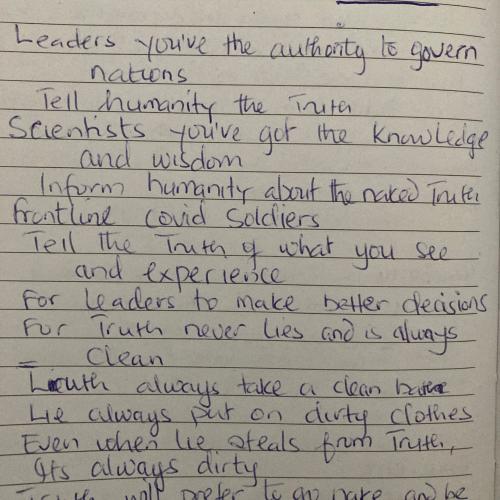 Leaders you've the authority to govern
nations
Tell humanity the Truth
Scientists you've got the knowledge
and wisdom
Inform humanity about the naked Truth
frontline covid Soldiers
Tell the Truth of what you see
and experience
For leaders to make better decisions
For Truth never lies and is always
= Clean
always take a clean
Lie always put on dirty clothes
Even when lie steals from Truth,
Its always dirty
Truth will prefer to go nake and be